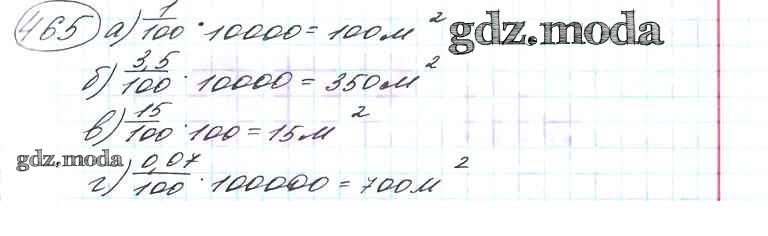 465 а) 1/100 · 10000 = 100 м²
gdz.moda
б) 3,5/100 · 10000 = 350 м²
в) 15/100 · 100 = 15 м²
gdz.moda
г) 0,07/100 · 100000 = 700 м²